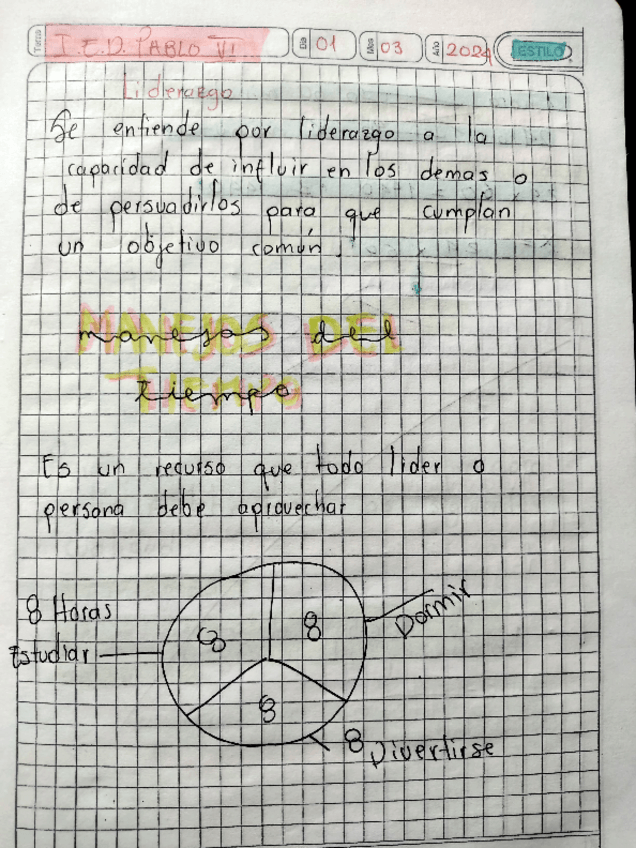 Tema I.E.D. PABLO VI Día 01 Mes 03 Año 2024 ESTILO
Liderazgo
Se entiende por liderazgo a la
capacidad de influir en los demas o
de persuadirlos para que cumplan
un objetivo común.
MANEJOS DEL
manejos del
TIEMPO
tiempo
Es un recurso que todo lider o
persona debe aprovechar
8 Horas
Estudiar
8
8
Dormir
8
8 Divertirse